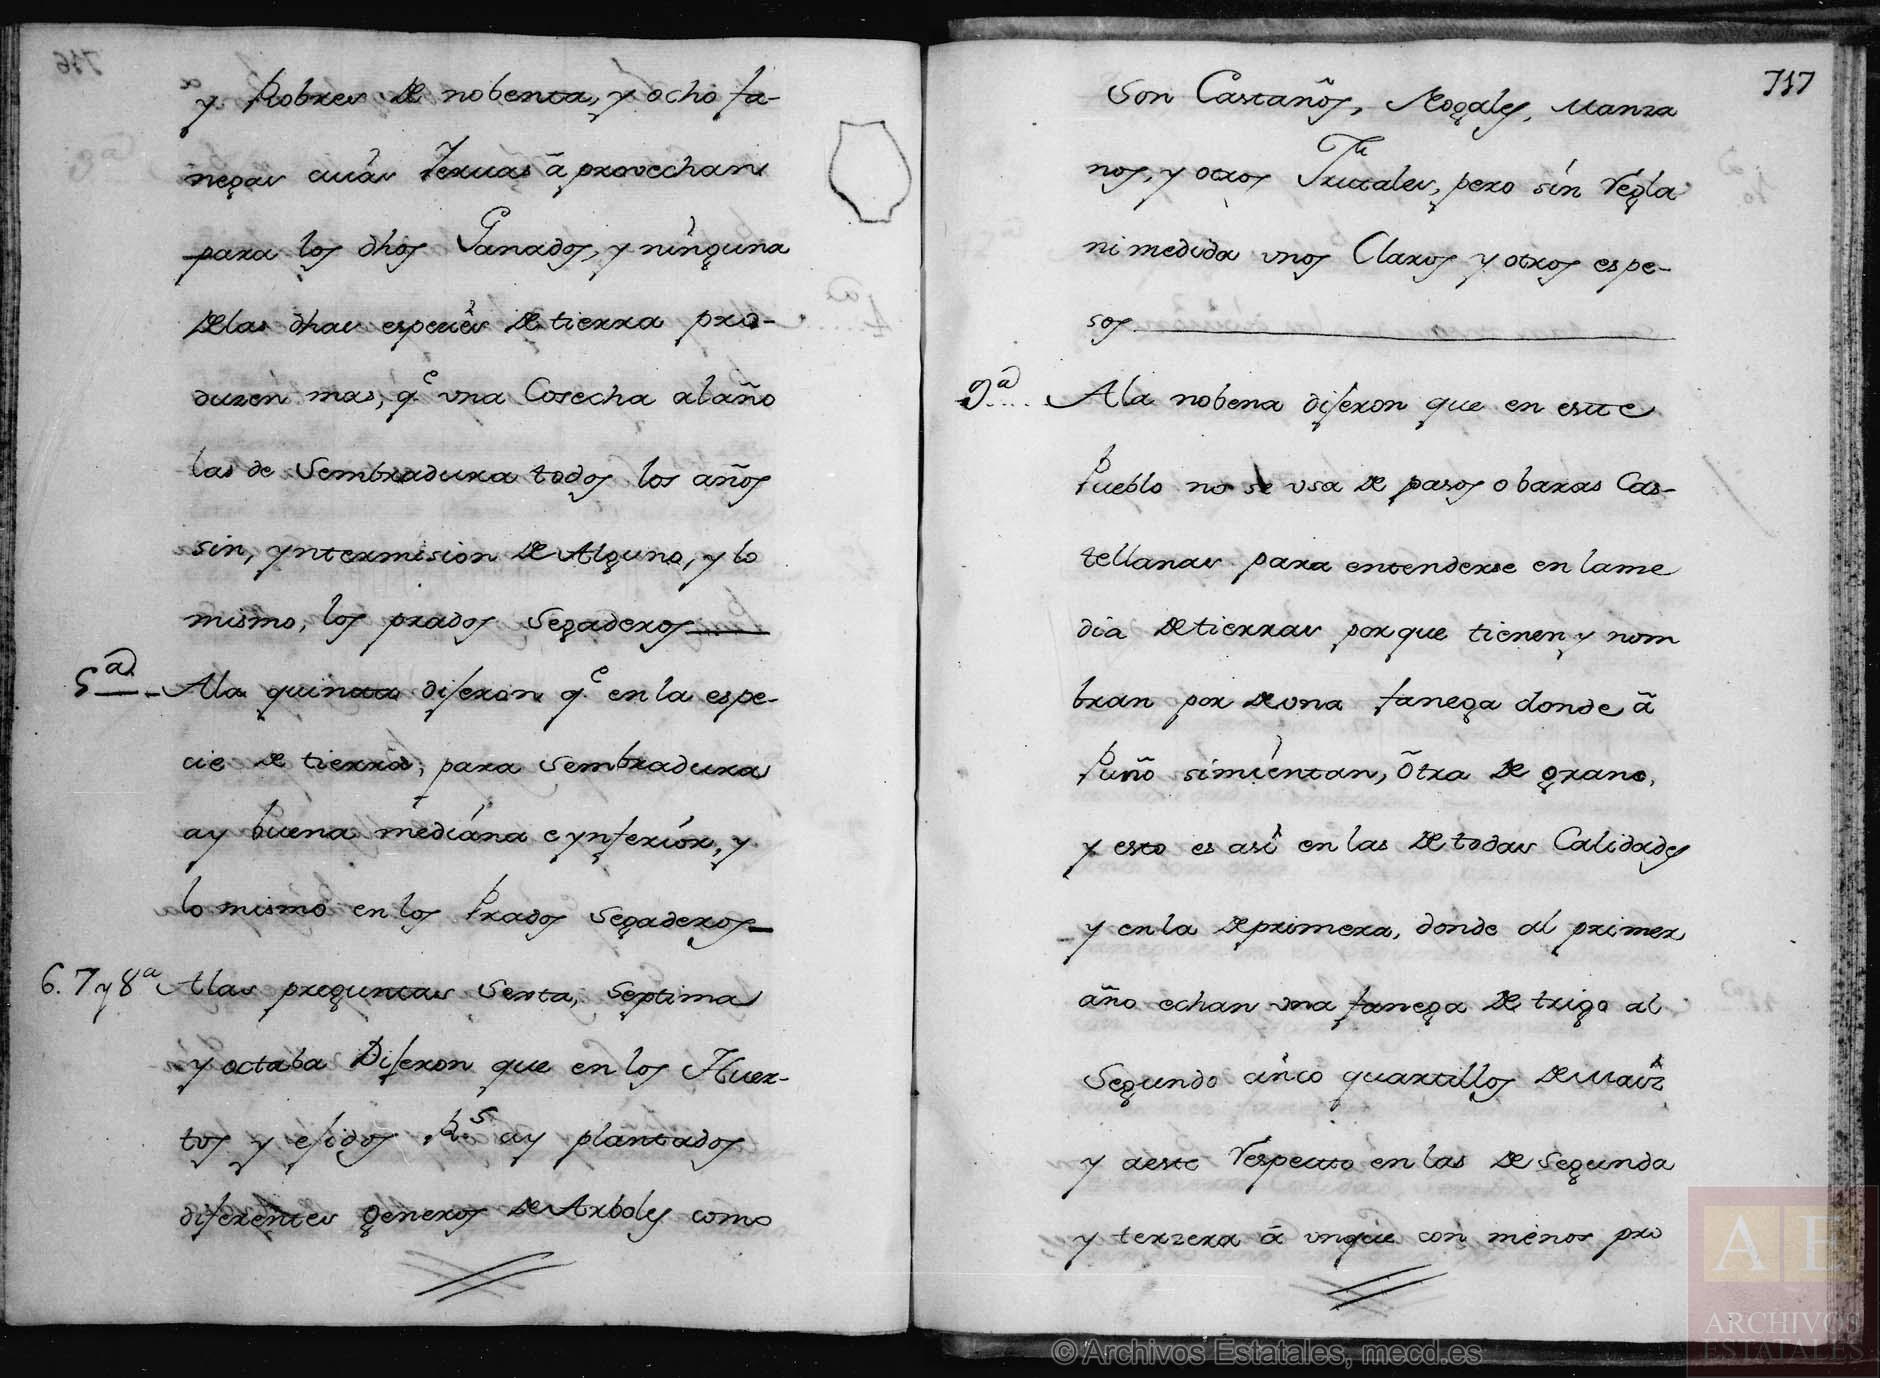 y Robres de nobenta, y ocho fa-
negas cuias Yeruas â provechan
para los dhos Ganados, y ninguna
delas dhas especies de tierra pro-
duzen mas, q.e vna Cosecha al año
las de Sembradura todos los años
sin, yntermision de Alguno, y lo
mismo, los prados Segaderos
5.a Ala quinta dijeron q.e en la espe-
cie de tierra, para Sembradura
ay buena mediana e ynferior, y
lo mismo en los Prados Segaderos
6. 7 y 8a Alas preguntas Sexta, Septima
y octaba Dijeron que en los Huer-
tos y ejidos R.s ay plantados
diferentes generos de Arboles como
717
Son Castaños, Nogales, Manza
nos, y otros Frutales, pero sin regla
ni medida vnos Claros y otros espe-
sos
9.a Ala nobena dijeron que en este
Pueblo no se vsa de pasos o baras Cas-
tellanas para entenderse en la me
dia de tierras porque tienen y nom
bran por de vna fanega donde â
Puño simientan, Otra de grano,
y esto es asi en las de todas Calidades
y en la de primera, donde al primer
año echan vna fanega de trigo al
Segundo cinco quartillos de Maiz
y aeste respecto en las de Segunda
y terzera â vnque con menos pro
© Archivos Estatales, mecd.es
AE
ARCHIVOS
ESTATALES